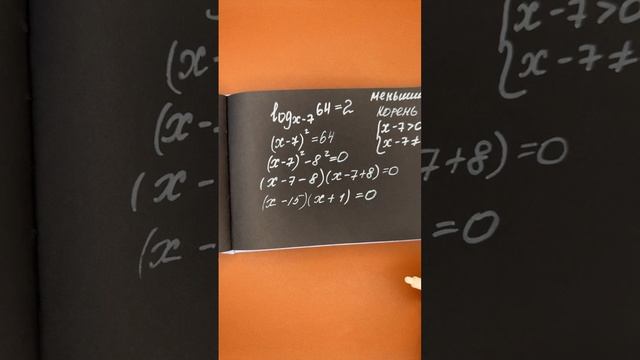 log x-7 64 = 2
(x-7)² = 64
(x-7)² - 8² = 0
(x-7-8)(x-7+8) = 0
(x-15)(x+1) = 0
корень
{x-7>0
{x-7≠
{x-7>0
{x-7≠
(x-
(x-
-7+8) = 0
(x-
= 0